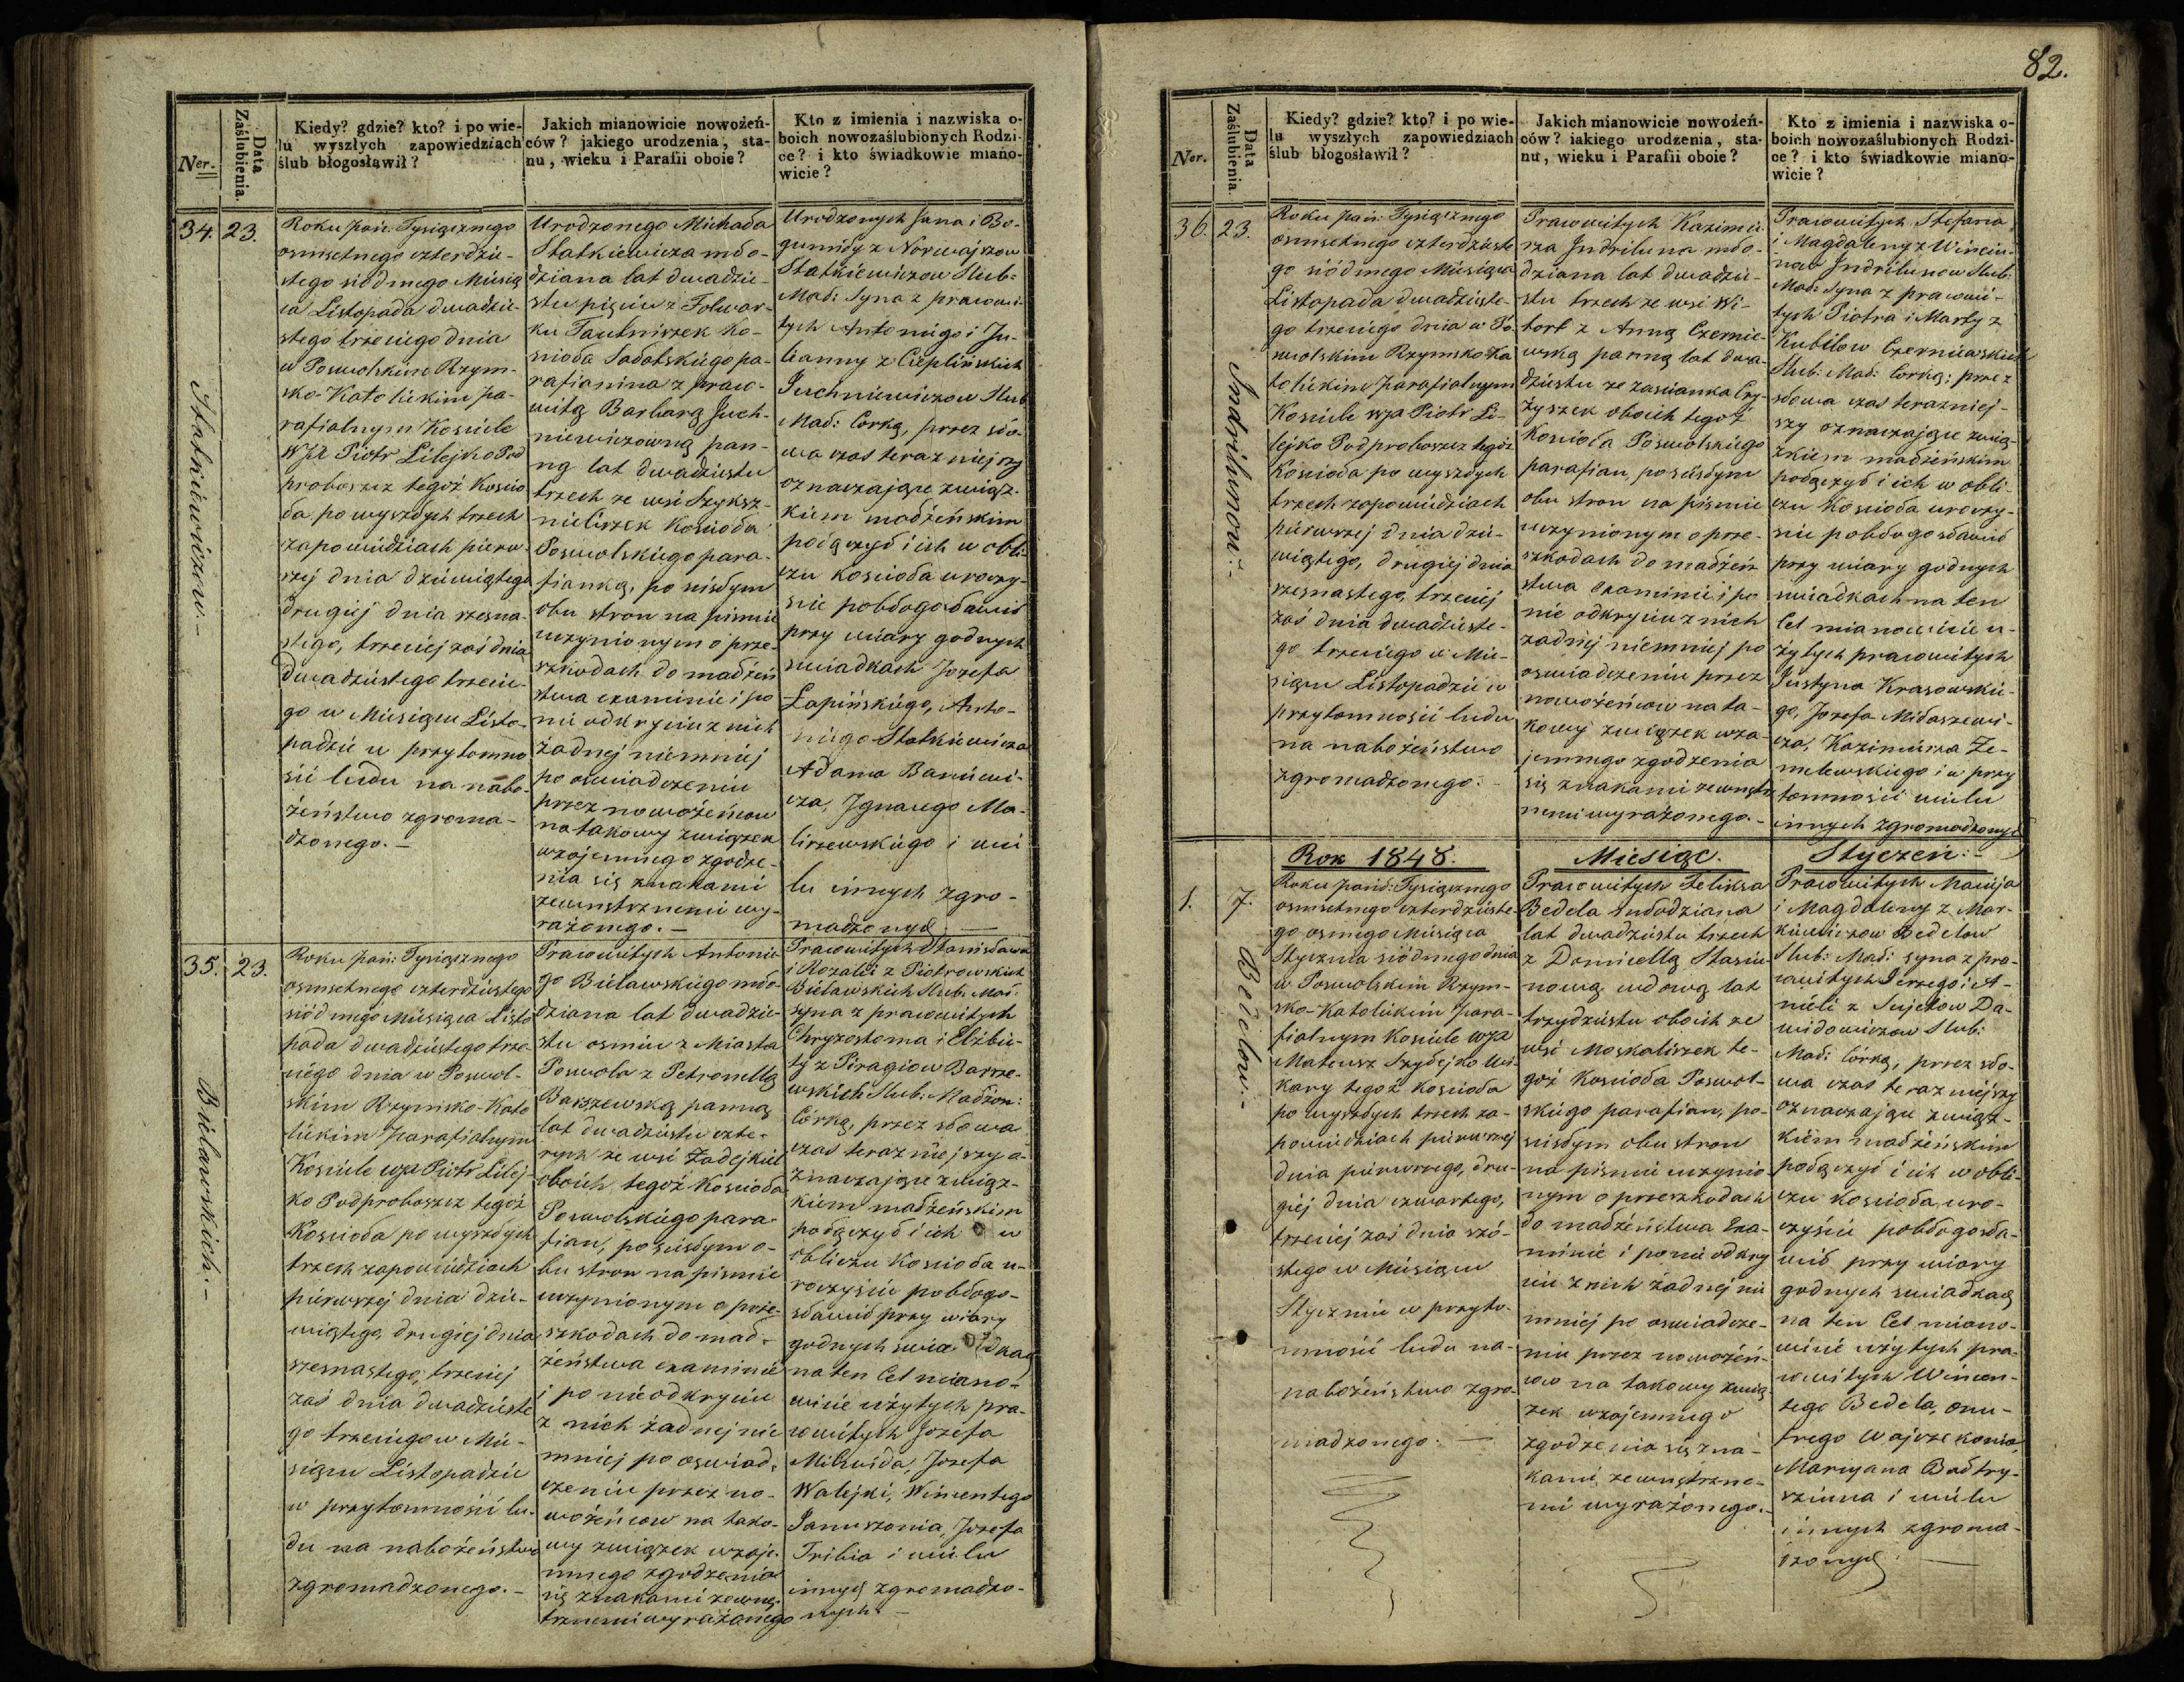 82.
Ner.
Data
Zaślubienia.
Kiedy? gdzie? kto? i po wie-
lu wyszłych zapowiedziach
ślub błogosławił?
Jakich mianowicie nowożeń-
ców? jakiego urodzenia, sta-
nu, wieku i Parafii oboie?
Kto z imienia i nazwiska o-
boich nowozaślubionych Rodzi-
ce? i kto świadkowie miano-
wicie?
34.
23.
Statkiewiczow.-
Roku pań: Tysiącznego
osmsetnego czterdzie-
stego siódmego Miesią
ca Listopada dwadzie-
stego trzeciego dnia
w Poswolskim Rzym-
sko-Katolickim pa-
rafialnym Kosciele
WJX Piotr Lilejko Pod
proboszcz tegoż Koscio
ła po wyszłych trzech
zapowiedziach pierw-
szej dnia dziewiątego
drugiej dnia szesna-
stego, trzeciej zaś dnia
dwadziestego trzecie-
go w Miesiącu Listo-
padzie w przytomno
sci ludu na nabo-
żeństwo zgroma-
dzonego.-
Urodzonego Michała
Statkiewicza mło-
dziana lat dwadzie-
stu pięciu z Folwar-
ku Tautniszek Ko-
scioła Sałatskiego pa-
rafianina z praw-
witą Barbarą Juch-
niewiczowną pan-
ną lat dwadziestu
trzech ze wsi Szyksz-
nieliszek Koscioła
Poswolskiego para-
fianką, po scisłym
obu stron na pismie
uczynionym o prze-
szkodach do małżeń
stwa examinie i po
nie odkryciu z nich
żadnej niemniej
po oswiadczeniu
przez nowożeńcow
na takowy związek
wzajemnego zgodze-
nia się znakami
zewnętrznemi wy-
rażonego.-
Urodzonych Jana i Bo-
gumiły z Norwajszow
Statkiewiczow Slub:
Mał: Syna z prawowi-
tych Antoniego i Ju-
lianny z Cieplińskich
Juchniewiczow Slub
Mał: Corką, przez sło-
wa czas teraz niejszy
oznaczające związ-
kiem małżeńskim
połączył i ich w obli-
czu koscioła uroczy-
scie pobłogosławił
przy wiary godnych
swiadkach Jozefa
Łapińskiego, Anto-
niego Statkiewicza
Adama Baniewi-
cza, Ignacego Ma-
liszewskiego i wie
lu innych zgro-
madzonych.
35.
23.
Bielawskich.-
Roku pań: Tysiącznego
osmsetnego czterdziestego
siódmego Miesiąca Listo
pada dwadziestego trze-
ciego dnia w Poswol-
skim Rzymsko-Kato
lickim parafialnym
Kosciele WJX Piotr Lilej-
ko Podproboszcz tegoż
Koscioła po wyszłych
trzech zapowiedziach
pierwszej dnia dzie-
wiątego, drugiej dnia
szesnastego, trzeciej
zaś dnia dwadzieste
go trzeciego w Mie-
siącu Listopadzie
w przytomnosci lu-
du na nabożeństwo
zgromadzonego.-
Prawowitych Antonie
go Bielawskiego mło-
dziana lat dwadzie-
stu osmiu z Miasta
Poswola z Petronellą
Barszewską panną
lat dwadziestu czte-
rych ze wsi Zadejkiel
oboich tegoż Koscioła
Poswolskiego para-
fian, po scisłym o-
bu stron na pismie
uczynionym o prze-
szkodach do mał-
żeństwa examinie
i po nieodkryciu
z nich żadnej nie
mniej po oswiad-
czeniu przez no-
wożeńcow na tako-
wy związek wzaje-
mnego zgodzenia
się znakami zewnę-
trznemi wyrażonego
Prawowitych Stanisława
i Rozalii z Piotrowskich
Bielawskich Slub: Mał:
syna z prawowitych
Chryzostoma i Elżbie-
ty z Piragiow Barsze-
wskich Slub: Małżon:
Córką, przez słowa
czas teraz niejszy o-
znaczające związ-
kiem małżeńskim
połączył i ich w
obliczu Koscioła u-
roczyscie pobłogo-
sławił przy wiary
godnych swiadkach
na ten Cel miano-
wicie użytych pra-
wowitych Jozefa
Milwida, Jozefa
Walejki, Wincentego
Januszonia, Jozefa
Tribia i wielu
innych zgromadzo-
nych.-
Ner.
Data
Zaślubienia.
Kiedy? gdzie? kto? i po wie-
lu wyszłych zapowiedziach
ślub błogosławił?
Jakich mianowicie nowożeń-
ców? iakiego urodzenia, sta-
nu, wieku i Parafii oboie?
Kto z imienia i nazwiska o-
boich nowozaślubionych Rodzi-
ce? i kto świadkowie miano-
wicie?
36.
23.
Indrilunow.-
Roku pań: Tysiącznego
osmsetnego czterdzieste
go siódmego Miesiąca
Listopada dwadzieste-
go trzeciego dnia w Po-
swolskim Rzymsko Ka
tolickim parafialnym
Kosciele WJX Piotr Li-
lejko Podproboszcz tegoż
Koscioła po wyszłych
trzech zapowiedziach
pierwszej dnia dzie-
wiątego, drugiej dnia
szesnastego, trzeciej
zaś dnia dwadzieste-
go trzeciego w Mie-
siącu Listopadzie w
przytomnosci ludu
na nabożeństwo
zgromadzonego.-
Prawowitych Kazimie
rza Indriluna mło-
dziana lat dwadzie-
stu trzech ze wsi Wi-
tort z Anną Czernie-
wską panną lat dwa-
dziestu ze zascianka Czy-
żyszek oboich tegoż
Koscioła Poswolskiego
parafian, po scisłym
obu stron na pismie
uczynionym o prze-
szkodach do małżeń
stwa examinie i po
nie odkryciu z nich
żadnej niemniej po
oswiadczeniu przez
nowożeńcow na ta-
kowy związek wza-
jemnego zgodzenia
się znakami zewnętrz
nemi wyrażonego.-
Prawowitych Stefana
i Magdaleny z Wincu-
now Indrilunow Slub:
Mał: Syna z prawowi-
tych Piotra i Marty z
Kubilow Czerniewskich
Slub: Mał: Corką; przez
słowa czas terazniej-
szy oznaczające zwią-
zkiem małżeńskim
połączył i ich w obli-
czu Koscioła uroczy-
scie pobłogosławił
przy wiary godnych
swiadkach na ten
Cel mianowicie u-
żytych prawowitych
Justyna Krasowskie-
go, Jozefa Miłaszewi-
cza, Kazimierza Że-
melewskiego i w przy
tomnosci wielu
innych zgromadzonych
Rok 1848.
Miesiąc.
Styczeń.-
1.
7.
Bedelow.-
Roku pańs: Tysiącznego
osmsetnego czterdzieste-
go osmego Miesiąca
Stycznia siódmego dnia
w Poswolskim Rzym-
sko-Katolickim para-
fialnym Kosciele WJX
Mateusz Szydejko Wi-
kary tegoż Koscioła
po wyszłych trzech za-
powiedziach pierwszej
dnia pierwszego, dru-
giej dnia czwartego,
trzeciej zaś dnia szó-
stego w Miesiącu
Styczniu w przyto-
mnosci ludu na-
nabożeństwo zgro-
madzonego.-
Prawowitych Felixsa
Bedela młodziana
lat dwadziestu trzech
z Domicellą Stasiu-
nową wdową lat
trzydziestu oboich ze
wsi Moskaliszek te-
goż Koscioła Poswol-
skiego parafian, po-
scisłym obu stron
na pismie uczynio
nym o przeszkodach
do małżeństwa Exa-
minie i po nie odkry
ciu z nich żadnej nie
mniej po oswiadcze-
niu przez nowożeń-
cow na takowy zwią
zek wzajemnego
zgodzenia się zna-
kami zewnętrzne-
mi wyrażonego.-
Prawowitych Macieja
i Magdaleny z Mar-
kiewiczow Bedelow
Slub: Mał: syna z pra-
wowitych Jerzego i A-
nieli z Sujetow Da-
widowiczow Slub:
Mał: Córką, przez sło-
wa czas teraz niejszy
oznaczające związ-
kiem małżeńskim
połączył i ich w obli-
czu koscioła uro-
czyscie pobłogosła-
wił przy wiary
godnych swiadkach
na ten Cel miano-
wicie użytych pra-
wowitych Wincen-
tego Bedela, onu-
frego Wajczekonia
Maryana Bałtry-
sziuna i wielu
innych zgroma-
dzonych.